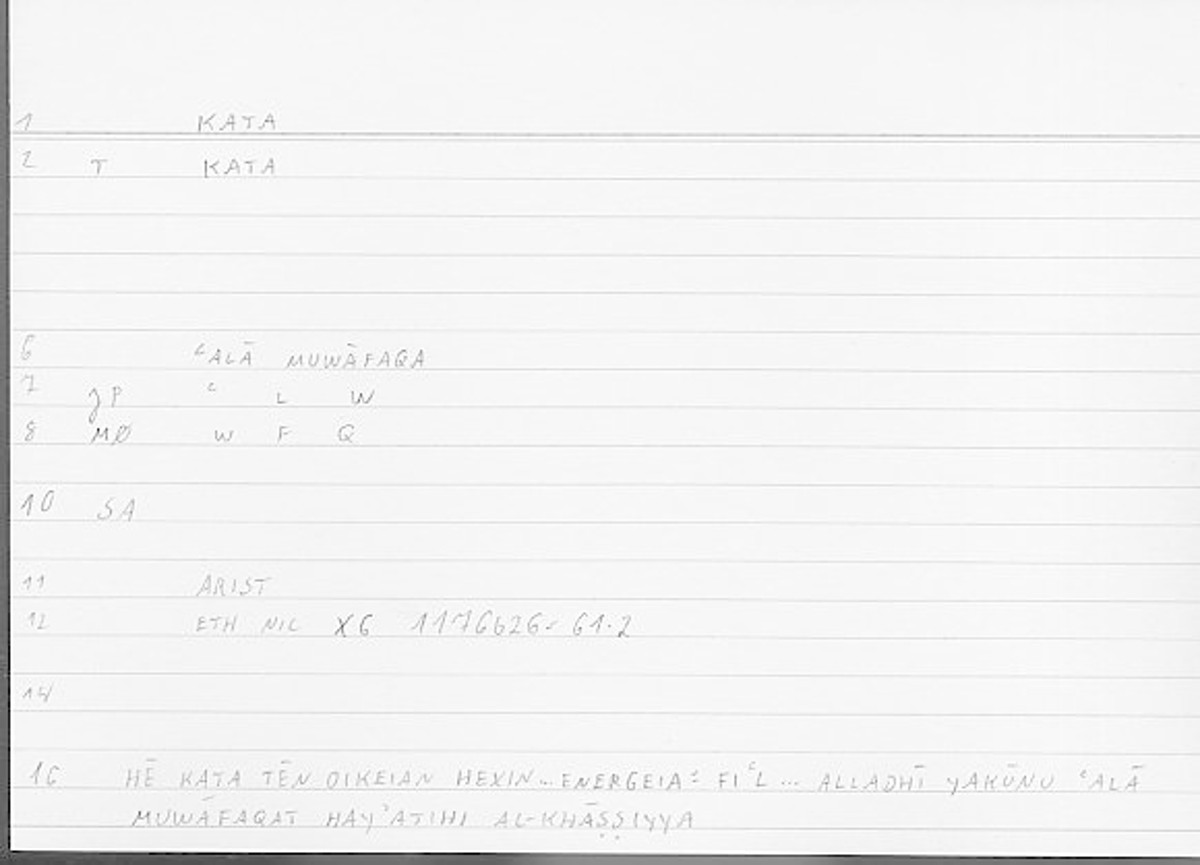 1 KATA
2 T KATA
6 ʿALĀ MUWĀFAQA
7 JP ʿ L W
8 MØ W F Q
10 SA
11 ARIST
12 ETH NIC X6 1176b26= 61.2
14
16 HĒ KATA TĒN OIKEIAN HEXIN... ENERGEIA = FIʿL ... ALLADHĪ YAKŪNU ʿALĀ
MUWĀFAQAT HAYʾATIHI AL-KHĀṢṢIYYA